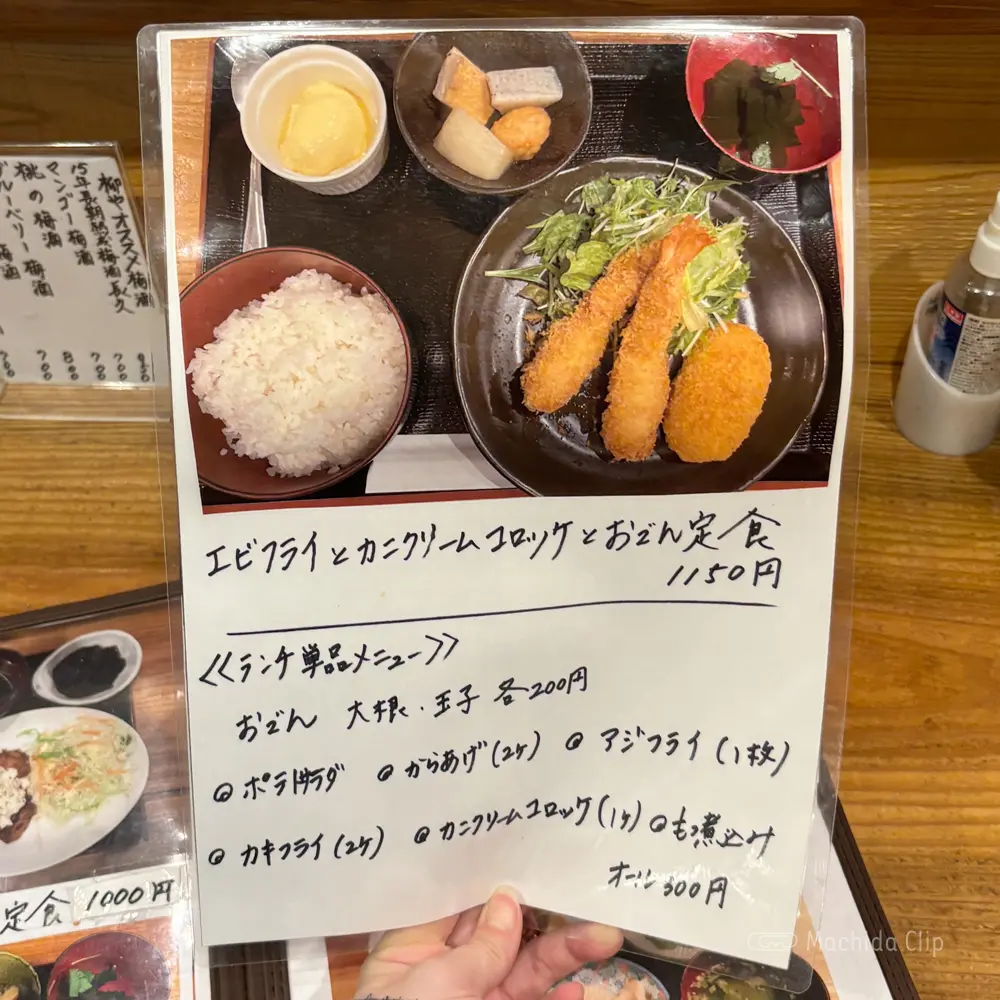 エビフライとカニクリームコロッケとおでん定食
1150円
《ランチ単品メニュー》
おでん 大根・玉子 各200円
◎ポテトサラダ ◎からあげ(2ヶ) ◎アジフライ(1枚)
◎カキフライ(2ヶ) ◎カニクリームコロッケ(1ヶ) ◎もつ煮込み
オール300円
柳やオススメ梅酒
15年長期熟成梅酒長久
マンゴー梅酒
桃の梅酒
ブルーベリー梅酒
定食 1000円
Machida Clip